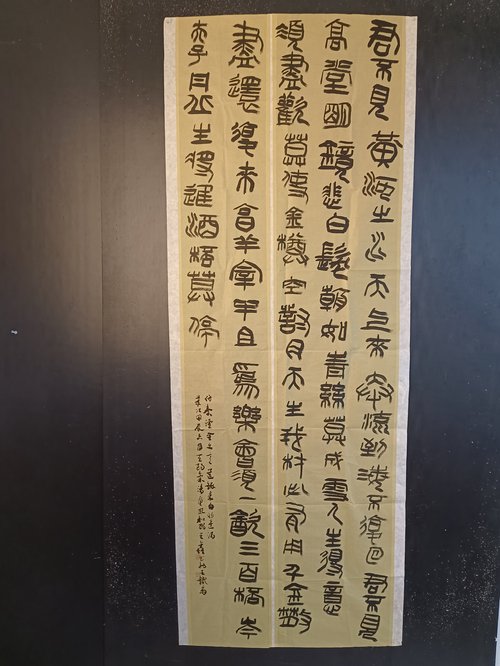 君不見黃河之水天上來奔流到海不復回君不見
高堂明鏡悲白髮朝如青絲莫成雪人生得意
須盡歡莫使金樽空對月天生我材必有用千金散
盡還復來亯羊宰牛且為樂會須一飲三百桮岑
夫子丹丘生將進酒桮莫停